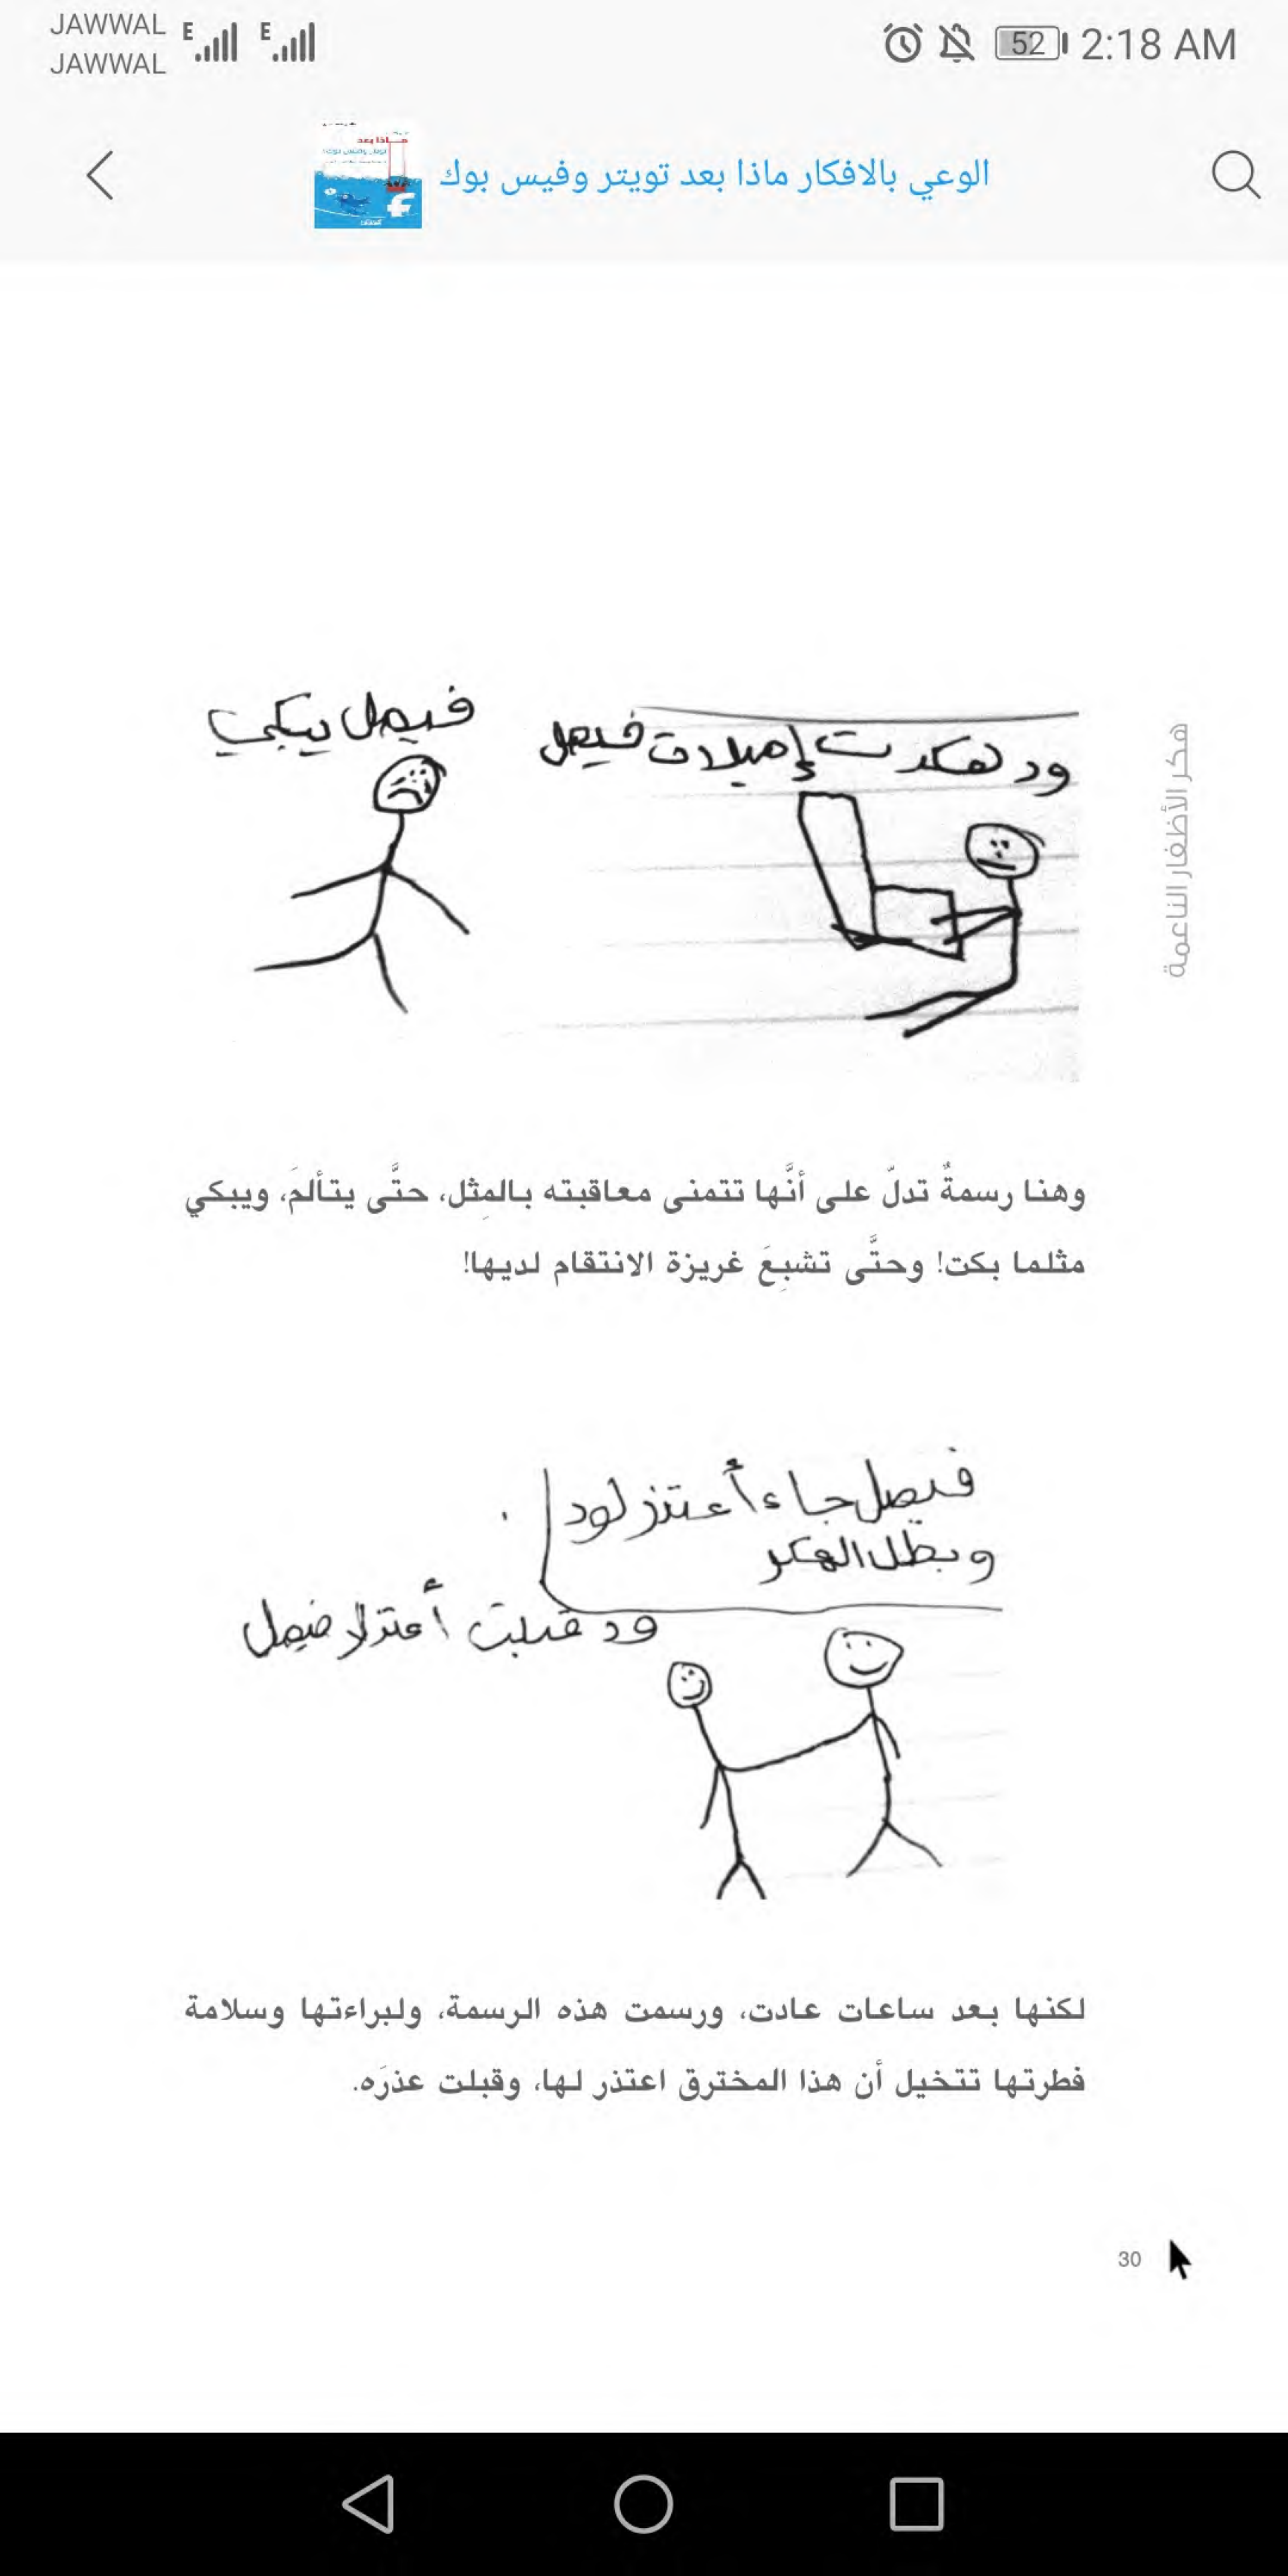 JAWWAL
JAWWAL
E
E
52
2:18 AM
الوعي بالافكار ماذا بعد تويتر وفيس بوك
هكر الأظفار الناعمة
ود هكرت إميلات فيصل
فيصل يبكي
وهنا رسمةٌ تدلّ على أنَّها تتمنى معاقبته بالمِثل، حتَّى يتألمَ، ويبكي
مثلما بكت! وحتَّى تشبِعَ غريزة الانتقام لديها!
فيصل جاء أعتذر لود
وبطل الهكر
ود قبلت أعتزار فيصل
لكنها بعد ساعات عادت، ورسمت هذه الرسمة، ولبراءتها وسلامة
فطرتها تتخيل أن هذا المخترق اعتذر لها، وقبلت عذرَه.
30